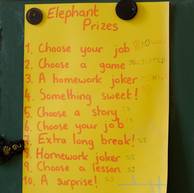 Elephant
Prizes
1. Choose your job
2. Choose a game
3. A homework joker
4. Something sweet!
5. Choose a story
6. Choose your job
7. Extra long break!
8. Homework joker
9. Choose a lesson
10. A surprise!